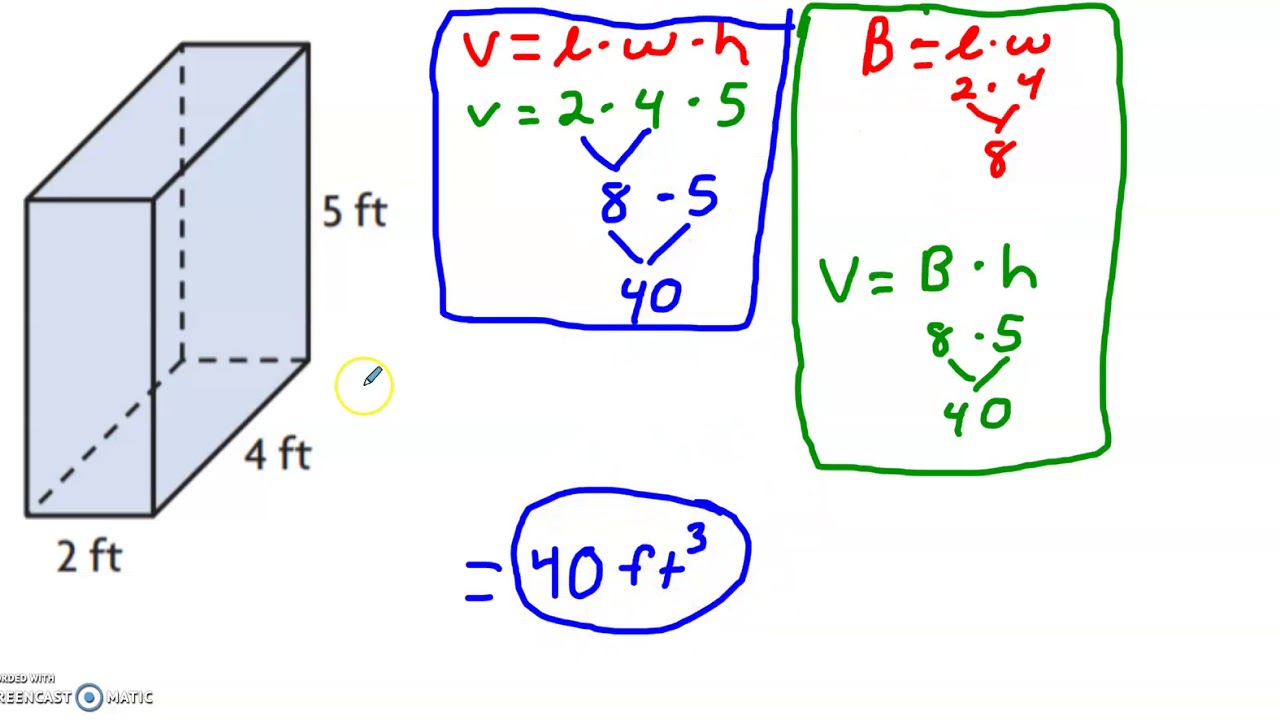 5 ft
4 ft
2 ft
V = l · w · h
v = 2 · 4 · 5
8 · 5
40
B = l · w
2 · 4
8
V = B · h
8 · 5
40
= 40 ft³
ORDED WITH
REENCAST MATIC